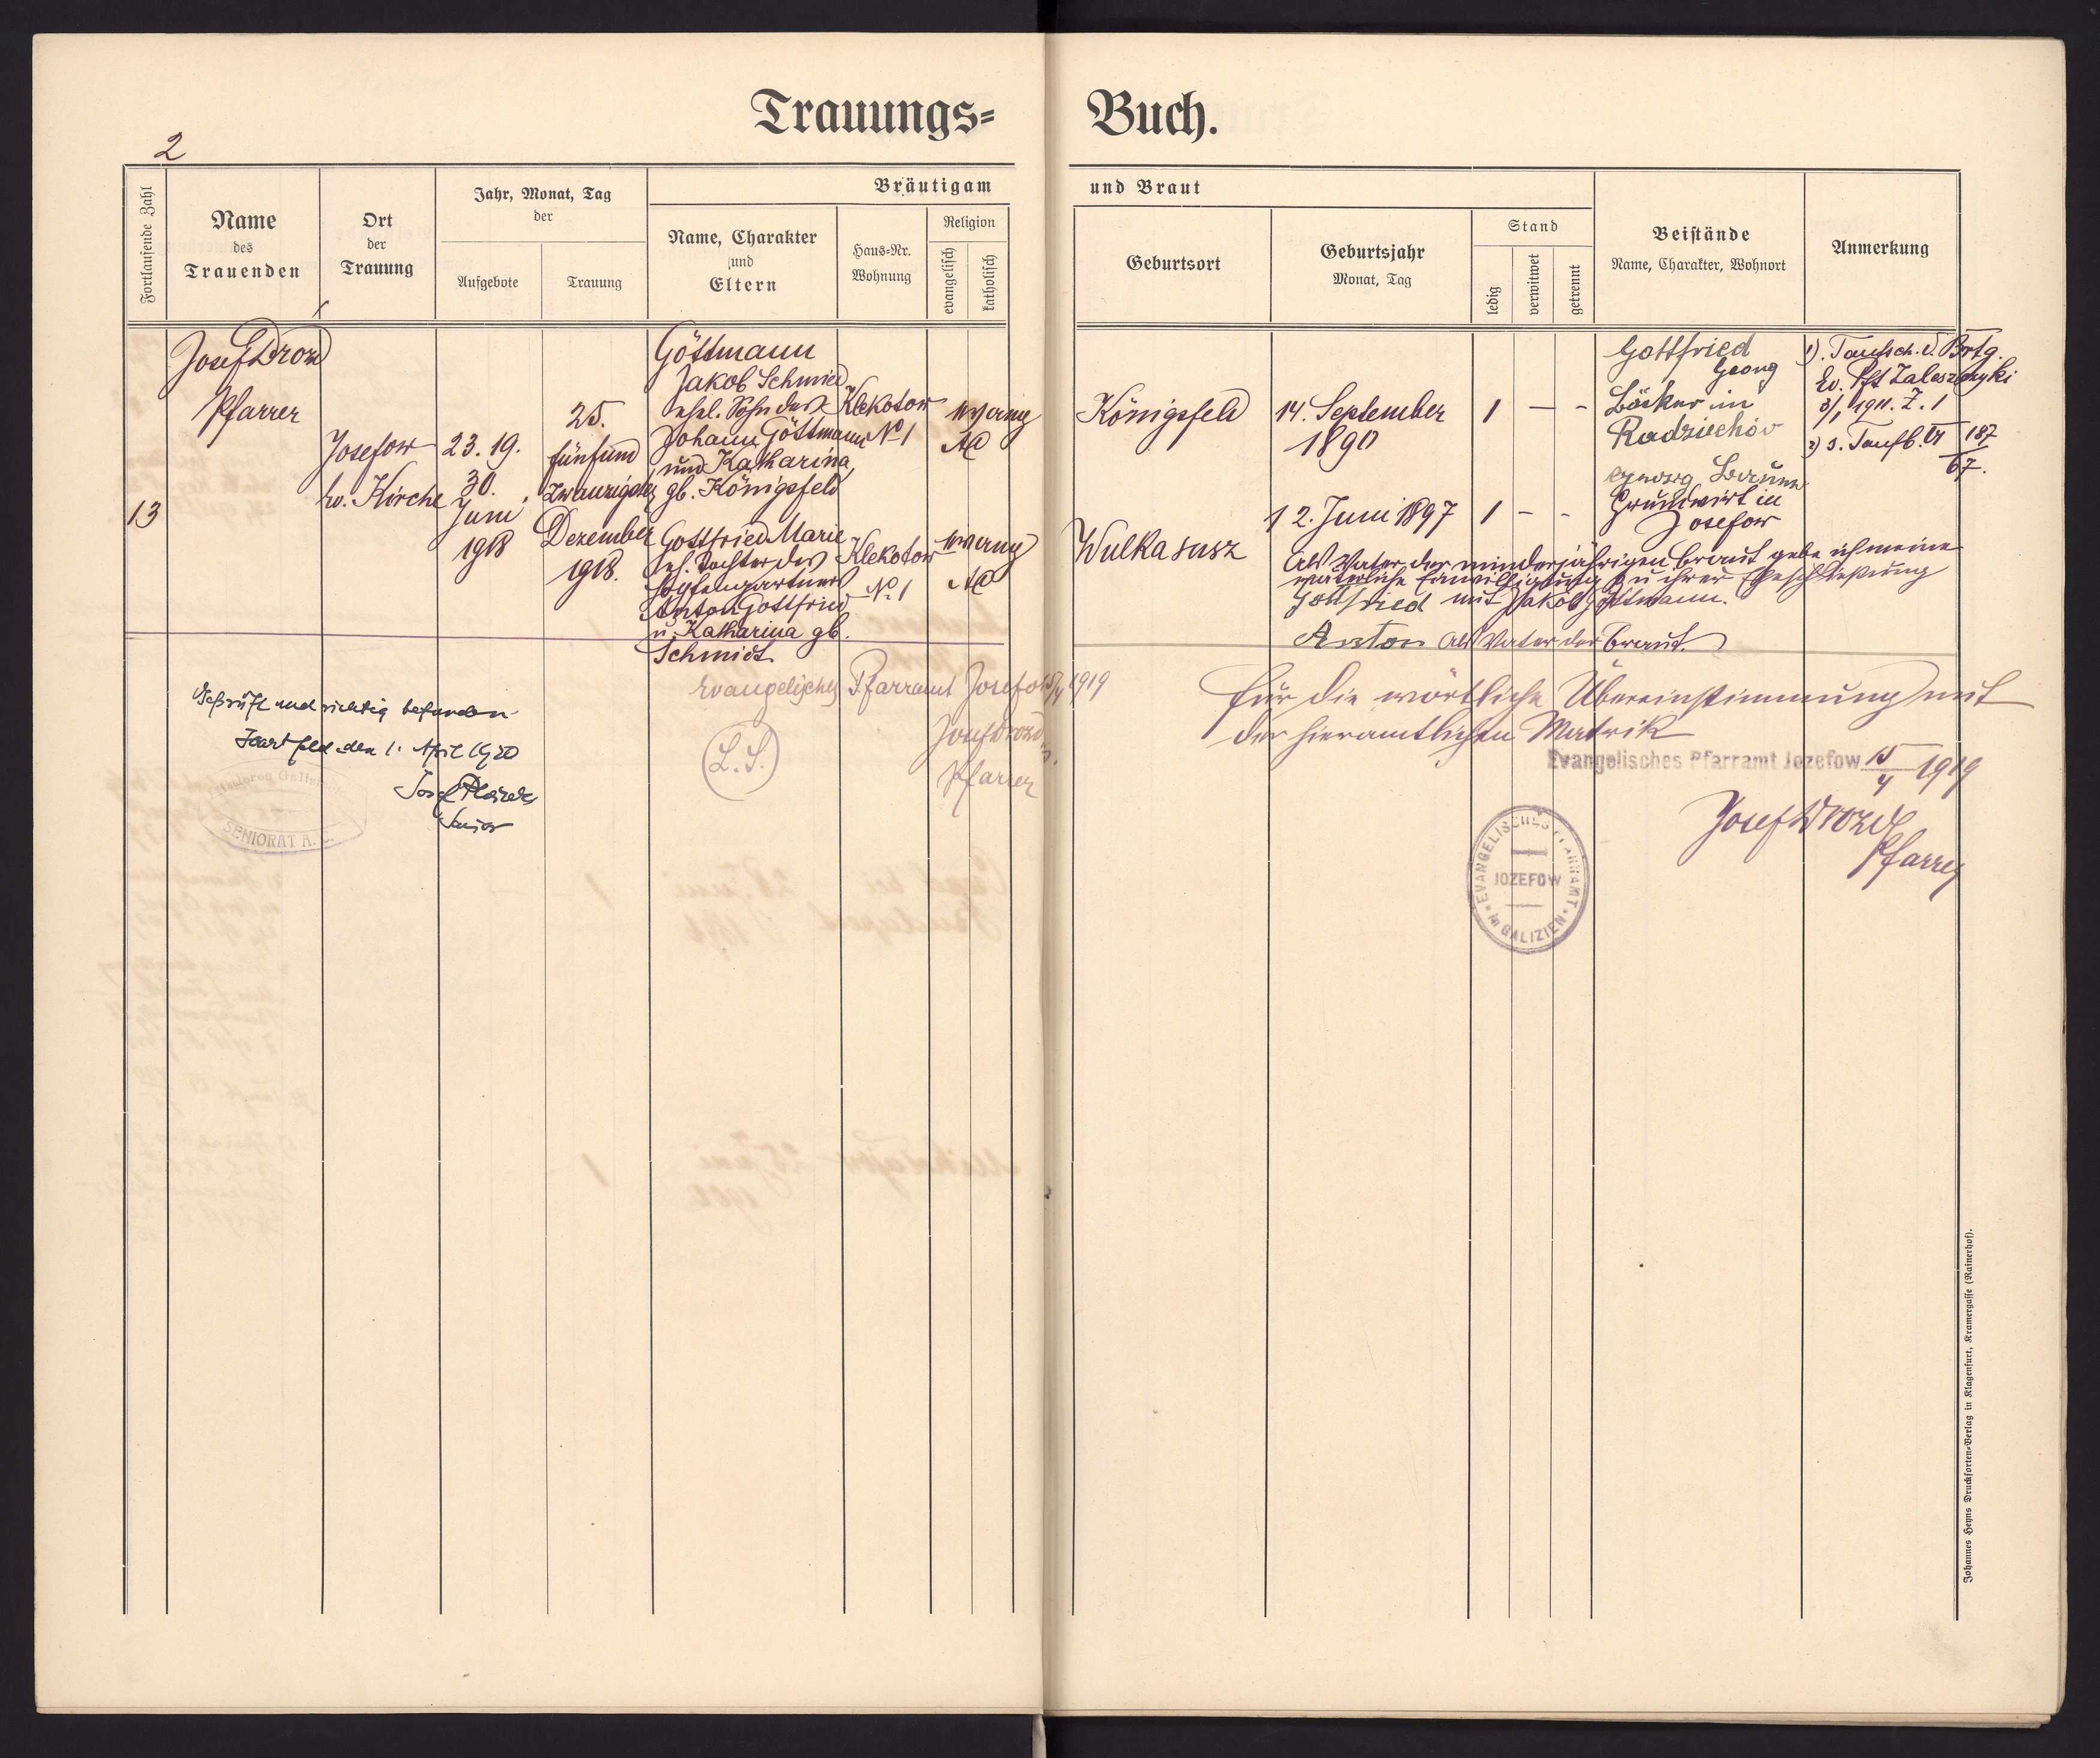 Trauungs=
Buch.
2
Fortlaufende Zahl
Name
des
Trauenden
Ort
der
Trauung
Jahr, Monat, Tag
der
Aufgebote
Trauung
Bräutigam
Name, Charakter
und
Eltern
Haus=Nr.
Wohnung
Religion
evangelisch
katholisch
und Braut
Geburtsort
Geburtsjahr
Monat, Tag
Stand
ledig
verwitwet
getrennt
Beistände
Name, Charakter, Wohnort
Anmerkung
13
Josef Drozd
Pfarrer
Josefow
Ev. Kirche
23. 19.
30.
Juni
1918
25.
fünfund
zwanzigster
Dezember
1918.
Göttmann
Jakob Schmied
ehel. Sohn des
Johann Göttmann
und Katharina
gb. Königsfeld
Klekotow
No 1
evang
AC
Königsfeld
14. September
1890
1 — -
Gottfried
Georg
Bäcker in
Radziechów
Georg
Grundwirt in
Josefow
1). Taufsch. d. Brtg.
Ev. Pft Zaleszczyki
3/1 1911. Z. 1
2) s. Taufb. VI 187
67.
Gottfried Marie
eh. Tochter des
Anton Gottfried
u. Katharina gb.
Schmidt
Klekotow
No 1
evang
AC
Wulkasusz
12. Juni 1897
1 - -
Als Vater der minderjährigen Braut gebe ich meine
väterliche Einwilligung zu ihrer Eheschließung
Gottfried mit Jakob Göttmann.
Anton als Vater der Braut.
Evangelisches Pfarramt Josefow 15/4 1919
(L.S.)
Josef Drozd
Pfarrer
Geprüft und richtig befunden
den 1. April 1920
Josef
Senior
SENIORAT A. C.
Für die wörtliche Übereinstimmung mit
der hieramtlichen Matrik
Evangelisches Pfarramt Jozefow 15/4 1919
Josef Drozd
Pfarrer
EVANGELISCHES PFARRAMT
JOZEFOW
in GALIZIEN
Johannes Heyns Drucksorten=Verlag in Klagenfurt, Kramergasse (Rainerhof).